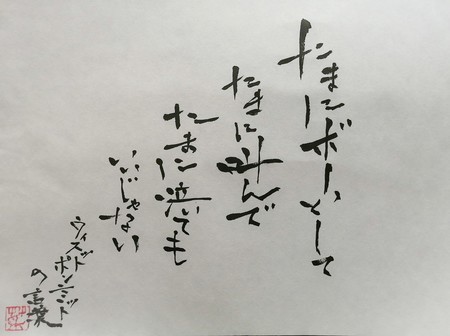 たまにボーッとして
たまに叫んで
たまに泣いても
いいじゃない
ウィズッド
ポンミット
の言葉